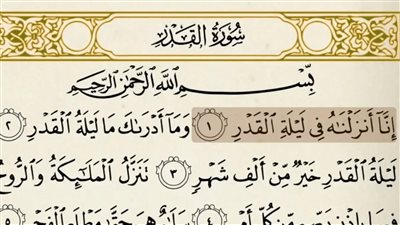 سُورَةُ القَدْرِ
بِسْمِ اللَّهِ الرَّحْمَٰنِ الرَّحِيمِ
إِنَّآ أَنزَلْنَٰهُ فِى لَيْلَةِ ٱلْقَدْرِ ١ وَمَآ أَدْرَىٰكَ مَا لَيْلَةُ ٱلْقَدْرِ ٢
لَيْلَةُ ٱلْقَدْرِ خَيْرٌ مِّنْ أَلْفِ شَهْرٍ ٣ تَنَزَّلُ ٱلْمَلَٰٓئِكَةُ وَٱلرُّوحُ
مِّن كُلِّ ٤ هِىَ حَتَّىٰ ٥